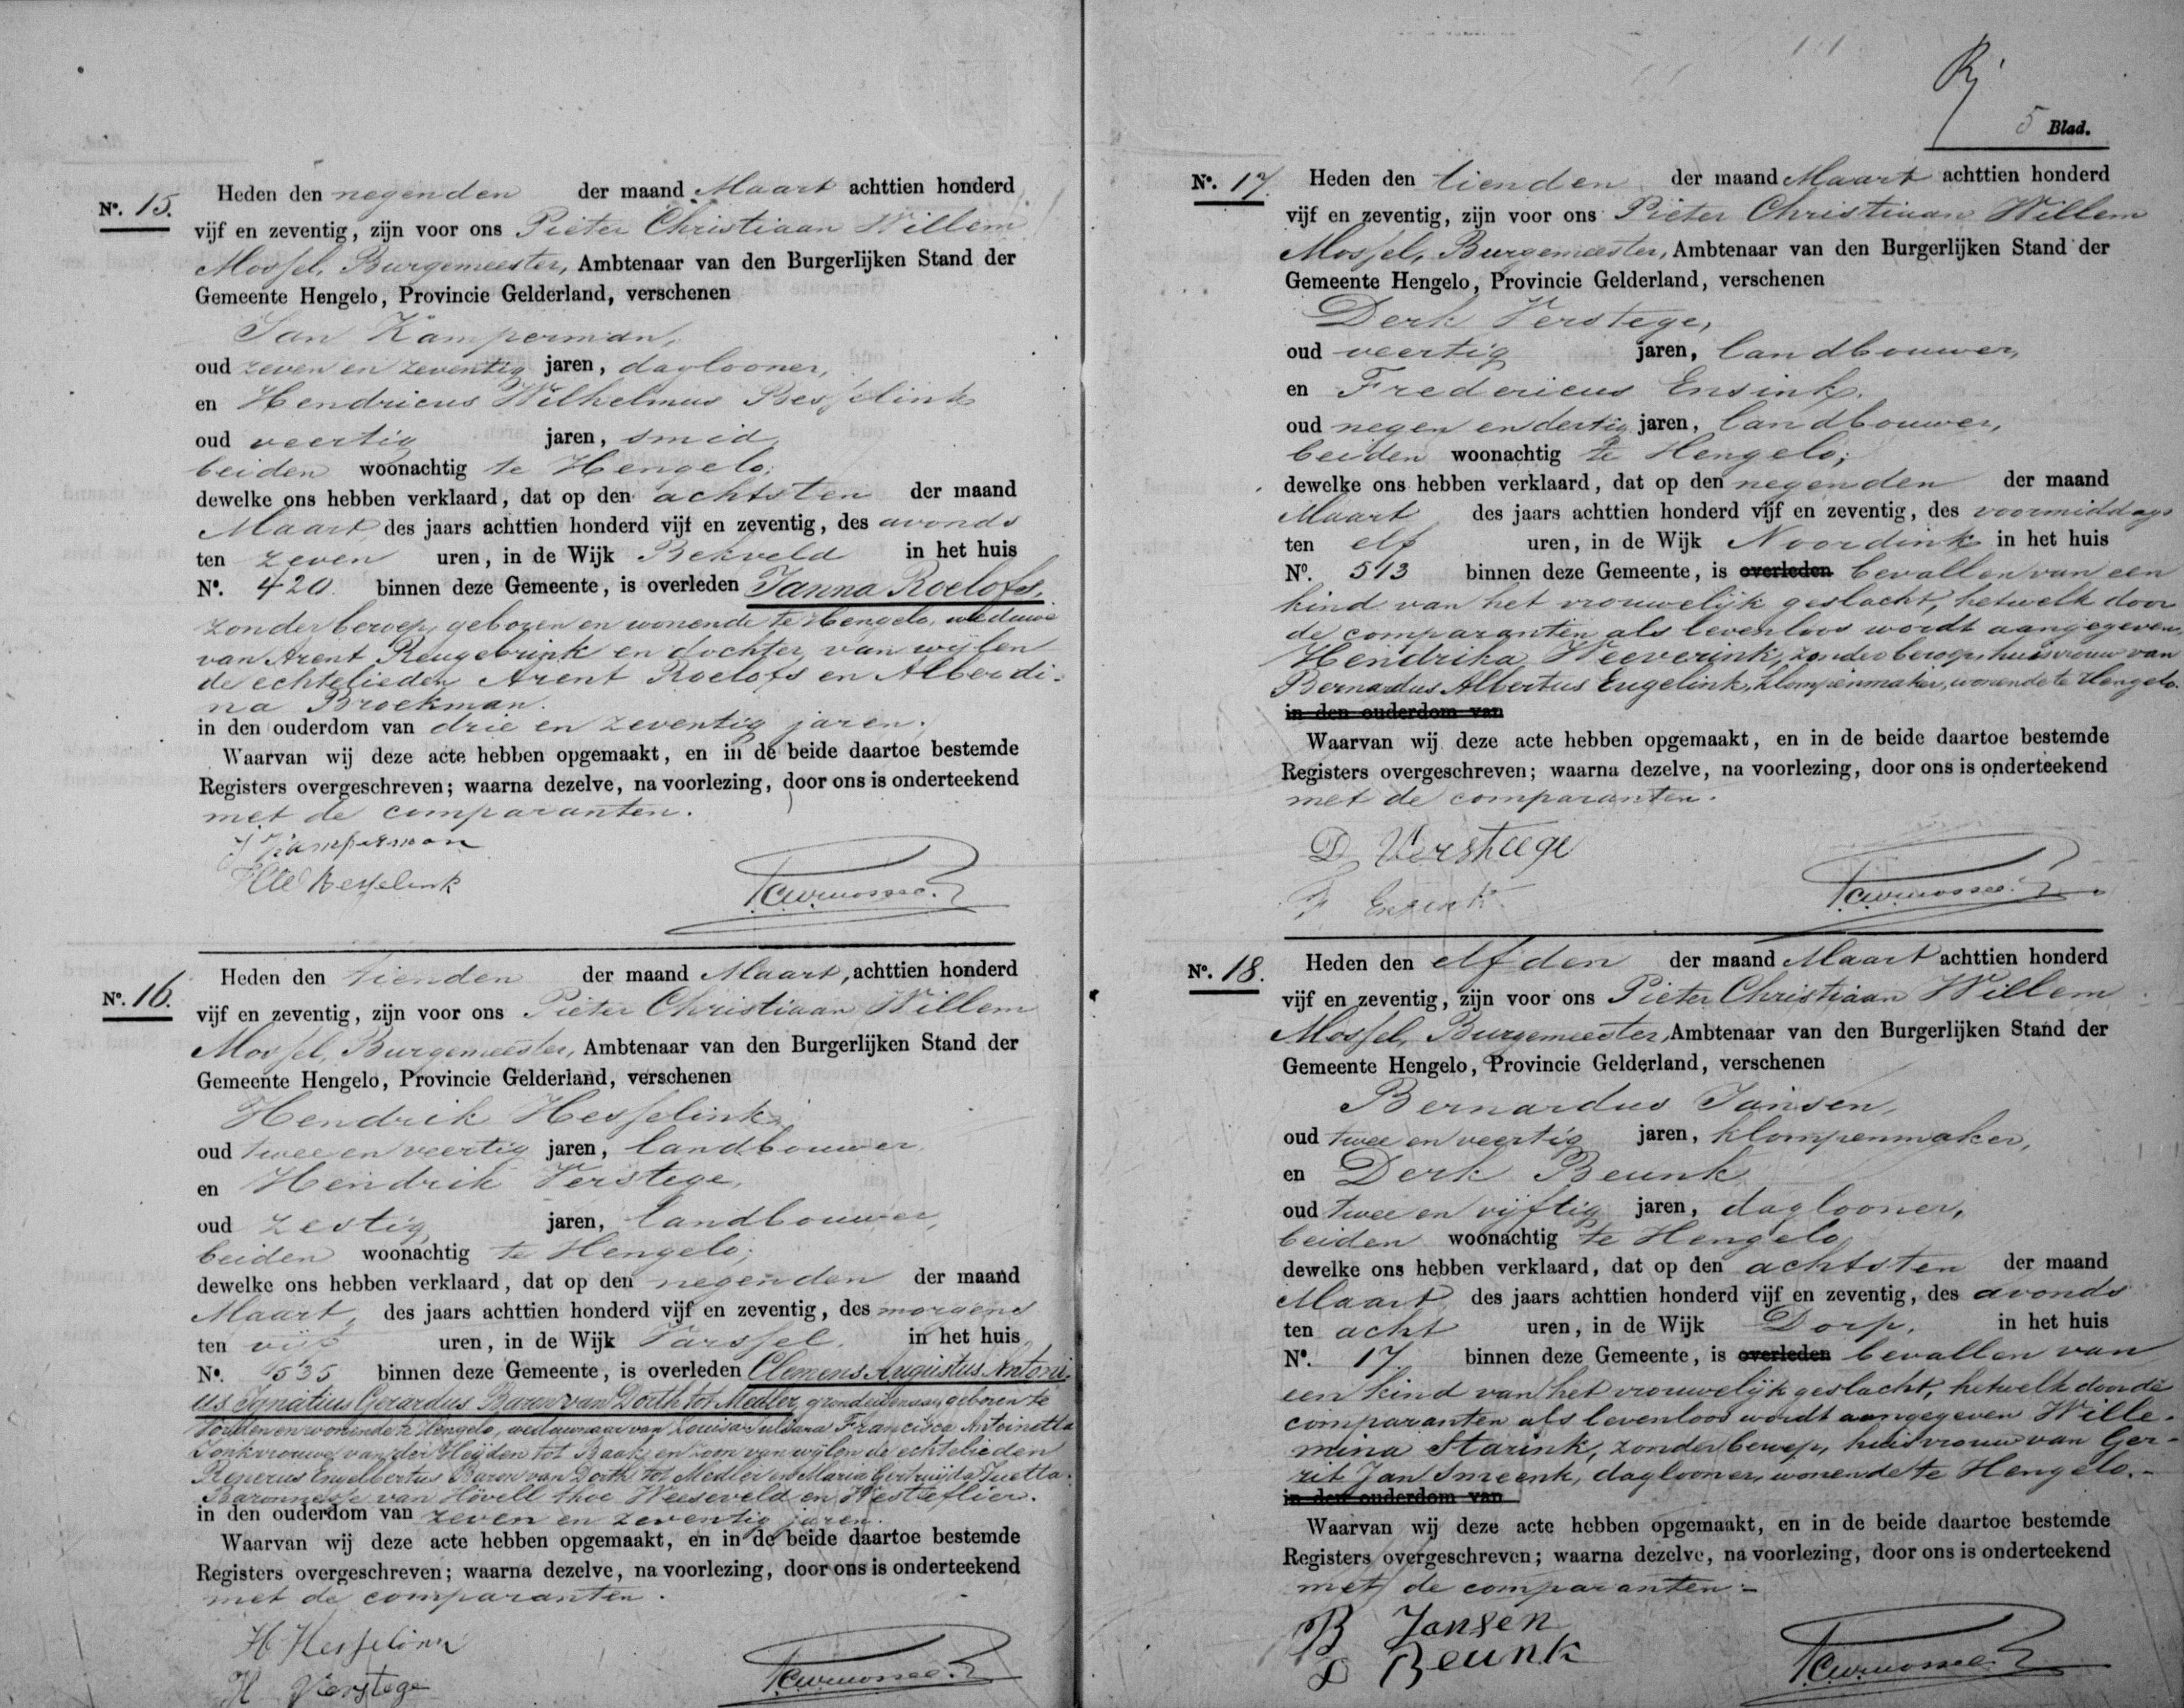 No. 15.
Heden den negenden der maand Maart achttien honderd
vijf en zeventig, zijn voor ons Pieter Christiaan Willem
Mossel, Burgemeester, Ambtenaar van den Burgerlijken Stand der
Gemeente Hengelo, Provincie Gelderland, verschenen
Jan Kamperman,
oud zeven en zeventig jaren, daglooner,
en Hendricus Wilhelmus Besselink
oud veertig jaren, smid,
beiden woonachtig te Hengelo;
dewelke ons hebben verklaard, dat op den achtsten der maand
Maart des jaars achttien honderd vijf en zeventig, des avonds
ten zeven uren, in de Wijk Bekveld in het huis
No. 420. binnen deze Gemeente, is overleden Janna Roelofs,
zonder beroep, geboren en wonende te Hengelo, weduwe
van Arent Reugebrink en dochter van wijlen
de echtelieden Arent Roelofs en Alberdi-
na Broekman.
in den ouderdom van drie en zeventig jaren.
Waarvan wij deze acte hebben opgemaakt, en in de beide daartoe bestemde
Registers overgeschreven; waarna dezelve, na voorlezing, door ons is onderteekend
met de comparanten.
J Kamperman
HW Besselink
PCWMossel
No. 16.
Heden den tienden der maand Maart, achttien honderd
vijf en zeventig, zijn voor ons Pieter Christiaan Willem
Mossel, Burgemeester, Ambtenaar van den Burgerlijken Stand der
Gemeente Hengelo, Provincie Gelderland, verschenen
Hendrik Hesselink,
oud twee en veertig jaren, landbouwer
en Hendrik Verstege,
oud zestig jaren, landbouwer,
beiden woonachtig te Hengelo;
dewelke ons hebben verklaard, dat op den negenden der maand
Maart, des jaars achttien honderd vijf en zeventig, des morgens
ten vijf uren, in de Wijk Varssel. in het huis
No. 535 binnen deze Gemeente, is overleden Clemens Augustus Antoni-
us Ignatius Gerardus Baron van Dorth tot Medler, grondeigenaar, geboren te
Vorden en wonende te Hengelo, weduwnaar van Louisa Juliana Francisca Antoinetta
Jonkvrouwe van der Heijden tot Baak, en zoon van wijlen de echtelieden
Reinerus Engelbertus Baron van Dorth tot Medler en Maria Gertruijda Juetta
Baronnesse van Hövell thoe Weeseveld en Westerflier.
in den ouderdom van zeven en zeventig jaren.
Waarvan wij deze acte hebben opgemaakt, en in de beide daartoe bestemde
Registers overgeschreven; waarna dezelve, na voorlezing, door ons is onderteekend
met de comparanten.
H Hesselink
H Verstege
PCWMossel
5 Blad.
No. 17.
Heden den tienden der maand Maart achttien honderd
vijf en zeventig, zijn voor ons Pieter Christiaan Willem
Mossel, Burgemeester, Ambtenaar van den Burgerlijken Stand der
Gemeente Hengelo, Provincie Gelderland, verschenen
Derk Verstege,
oud veertig jaren, landbouwer,
en Fredericus Ensink.
oud negen en dertig jaren, landbouwer,
beiden woonachtig te Hengelo;
dewelke ons hebben verklaard, dat op den negenden der maand
Maart des jaars achttien honderd vijf en zeventig, des voormiddags
ten elf uren, in de Wijk Noordink in het huis
No. 513 binnen deze Gemeente, is overleden bevallen van een
kind van het vrouwelijk geslacht, hetwelk door
de comparanten als levenloos wordt aangegeven,
Hendrika Weeverink, zonder beroep, huisvrouw van
Bernardus Albertus Eugelink, klompenmaker, wonende te Hengelo.
in den ouderdom van
Waarvan wij deze acte hebben opgemaakt, en in de beide daartoe bestemde
Registers overgeschreven; waarna dezelve, na voorlezing, door ons is onderteekend
met de comparanten.
D Versteege
F Ensink
PCWMossel
No. 18.
Heden den elfden der maand Maart achttien honderd
vijf en zeventig, zijn voor ons Pieter Christiaan Willem
Mossel, Burgemeester, Ambtenaar van den Burgerlijken Stand der
Gemeente Hengelo, Provincie Gelderland, verschenen
Bernardus Jansen,
oud twee en veertig jaren, klompenmaker,
en Derk Beunk
oud twee en vijftig jaren, daglooner,
beiden woonachtig te Hengelo
dewelke ons hebben verklaard, dat op den achtsten der maand
Maart des jaars achttien honderd vijf en zeventig, des avonds
ten acht uren, in de Wijk Dorp, in het huis
No. 17. binnen deze Gemeente, is overleden bevallen van
een kind van het vrouwelijk geslacht, hetwelk door de
comparanten als levenloos wordt aangegeven Wille-
mina Starink, zonder beroep, huisvrouw van Ger-
rit Jan Smeenk, daglooner, wonende te Hengelo.-
in den ouderdom van
Waarvan wij deze acte hebben opgemaakt, en in de beide daartoe bestemde
Registers overgeschreven; waarna dezelve, na voorlezing, door ons is onderteekend
met de comparanten.-
B Jansen
D Beunk
PCWMossel